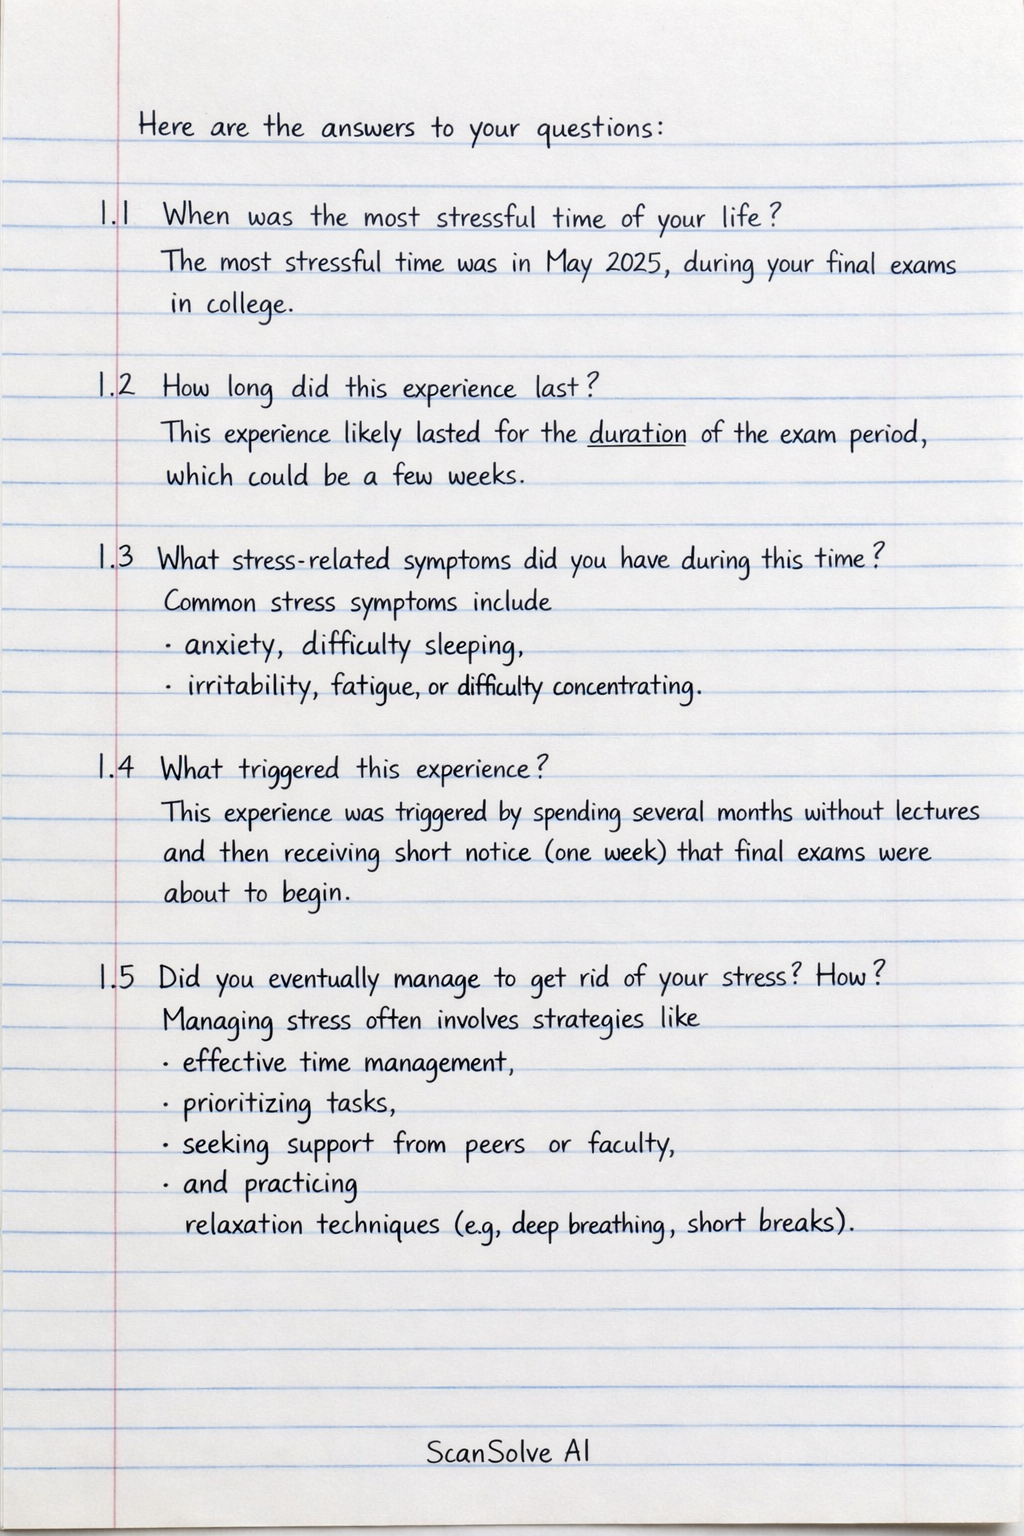 Here are the answers to your questions:
1.1 When was the most stressful time of your life?
The most stressful time was in May 2025, during your final exams
in college.
1.2 How long did this experience last?
This experience likely lasted for the duration of the exam period,
which could be a few weeks.
1.3 What stress-related symptoms did you have during this time?
Common stress symptoms include
· anxiety, difficulty sleeping,
· irritability, fatigue, or difficulty concentrating.
1.4 What triggered this experience?
This experience was triggered by spending several months without lectures
and then receiving short notice (one week) that final exams were
about to begin.
1.5 Did you eventually manage to get rid of your stress? How?
Managing stress often involves strategies like
· effective time management,
· prioritizing tasks,
· seeking support from peers or faculty,
· and practicing
relaxation techniques (e.g, deep breathing, short breaks).
ScanSolve AI